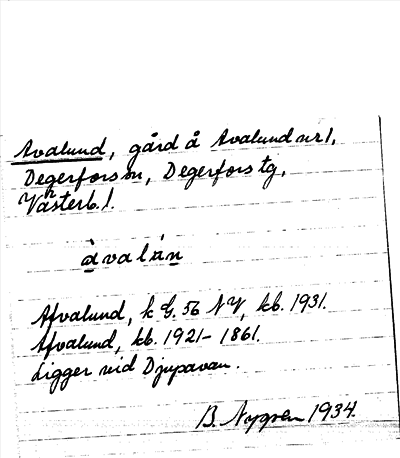 Avalund, gård å Avalund nr 1,
Degerfors sn, Degerfors tg,
Västerb. l.
àvalán
Afvalund, k G. 56 NV, kb. 1931.
Afvalund, kb. 1921-1861.
Ligger vid Djupavan.
B. Nygren 1934.